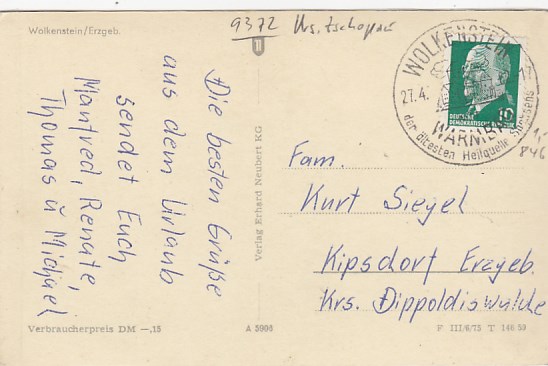 Wolkenstein/Erzgeb.
9372 Krs. Zschopau
Die besten Grüße
aus dem Urlaub
sendet Euch
Manfred, Renate,
Thomas ü Michael
Verlag Erhard Neubert KG
WOLKENSTEIN
27.4.
17
WARMBAD
der ältesten Heilquelle Sachsens
DEUTSCHE
DEMOKRATISCHE REPUBLIK
10
1,-
846
Fam.
Kurt Siegel
Kipsdorf Erzgeb.
Krs. Dippoldiswalde
Verbraucherpreis DM —,15
A 5996